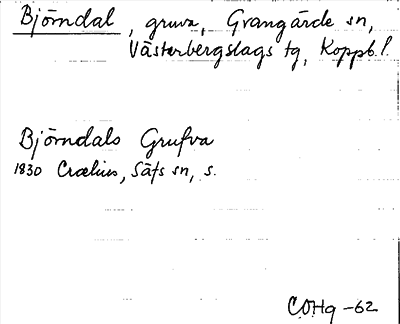 Björndal, gruva, Grangärde sn,
Västerbergslags tg, Koppb. l.
Björndals Grufva
1830 Crælius, Säfs sn, s.
C.OHg -62